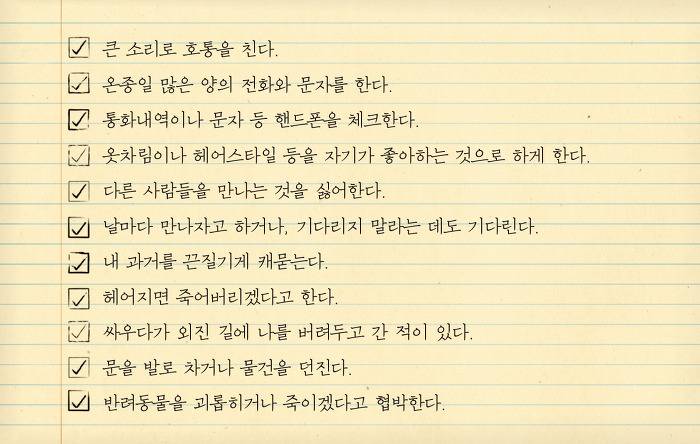 큰 소리로 호통을 친다.
온종일 많은 양의 전화와 문자를 한다.
통화내역이나 문자 등 핸드폰을 체크한다.
옷차림이나 헤어스타일 등을 자기가 좋아하는 것으로 하게 한다.
다른 사람들을 만나는 것을 싫어한다.
날마다 만나자고 하거나, 기다리지 말라는 데도 기다린다.
내 과거를 끈질기게 캐묻는다.
헤어지면 죽어버리겠다고 한다.
싸우다가 외진 길에 나를 버려두고 간 적이 있다.
문을 발로 차거나 물건을 던진다.
반려동물을 괴롭히거나 죽이겠다고 협박한다.